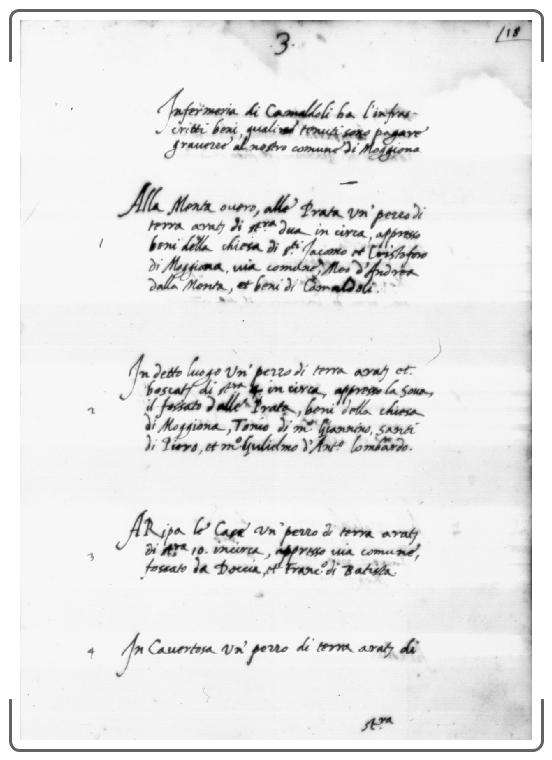 3.
118
Infermeria di Camaldoli ha l'infras-
critti beni, quali tenuti sono pagare
gravezze al nostro comune di Moggiona
Alla Monta overo, alle Prata un' pezzo di
terra aratª di stʳᵃ dua in circa, appresso
1 beni della chiesa di sᵗⁱ Jacomo et Cristoforo
di Moggiona, via comune, Meo d'Andrea
dalla Monta, et beni di Camaldoli.
In detto luogo un' pezzo di terra aratª et
boscatª di stʳᵃ 4 in circa, appresso la Sova,
2 il fossato dalle Prata, beni della chiesa
di Moggiona, Tonio di mº Giannino, santi
di Piero, et mº Gulielmo d'Antº lombardo.
A Ripa le Case un' pezzo di terra aratª
3 di stʳᵃ 10. incirca, appresso via comune,
fossato da Doccia, et Francº di Batista
4 In Cavertosa un' pezzo di terra aratª di
stʳᵃ